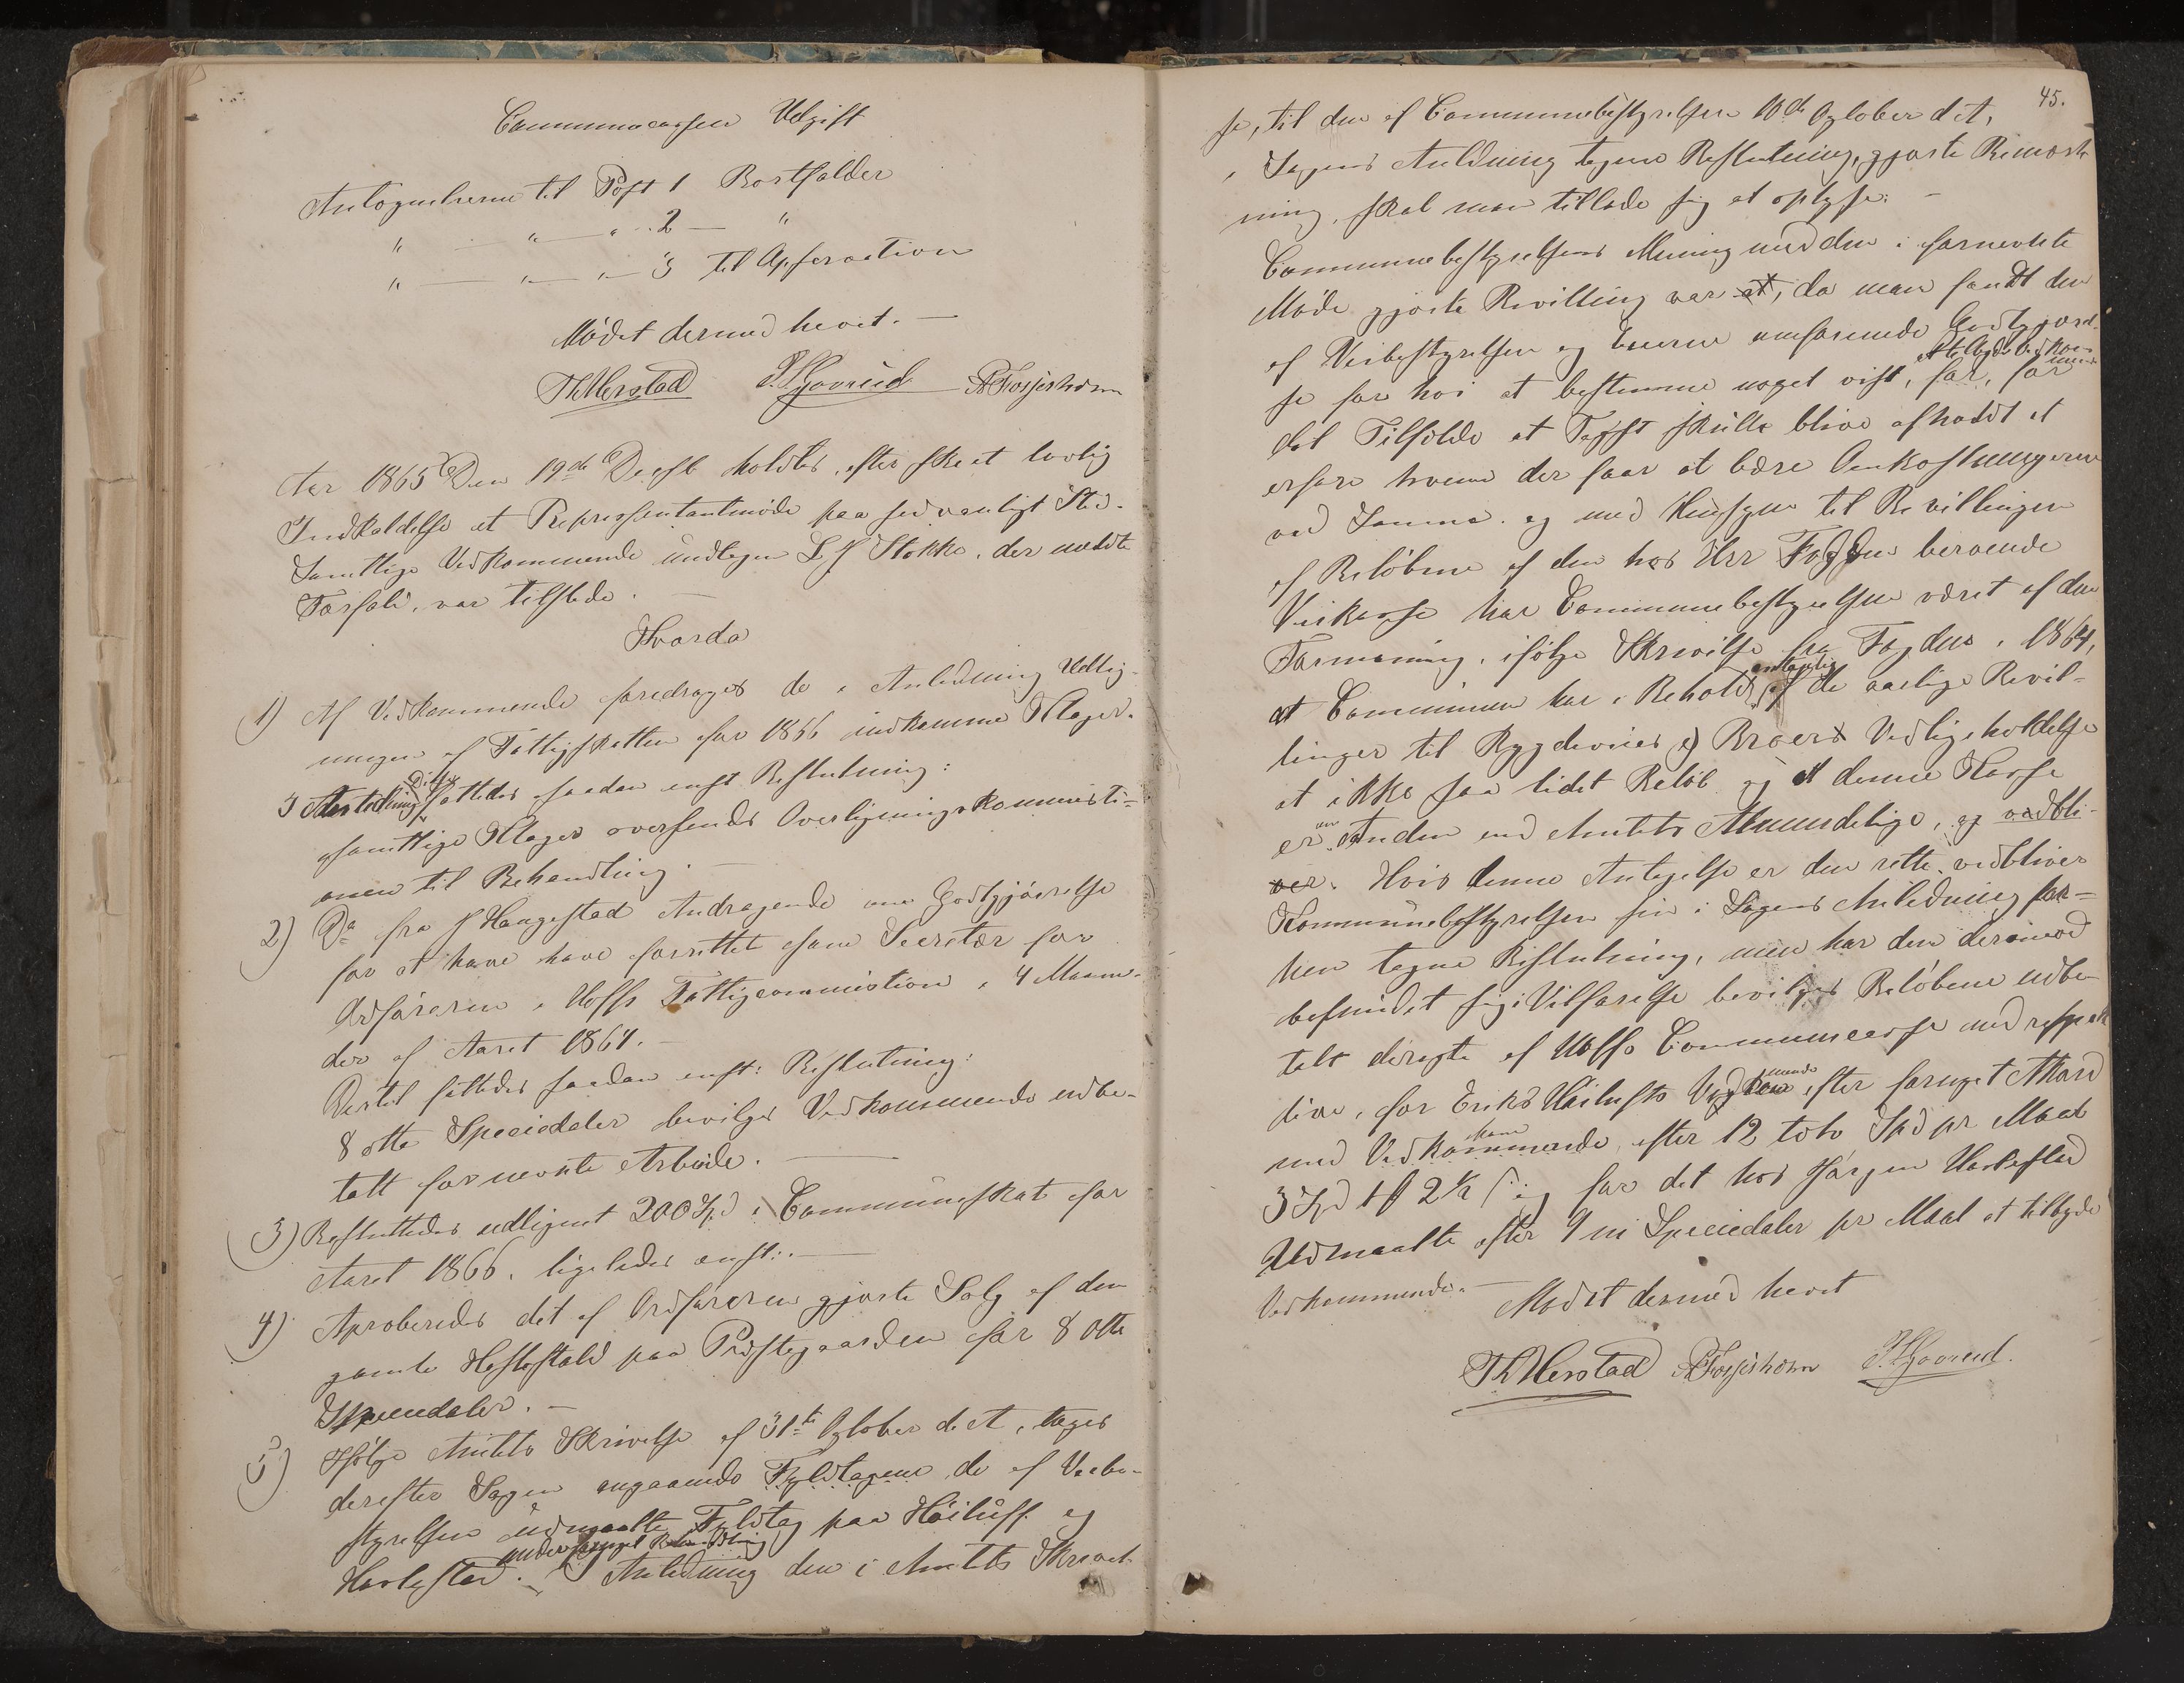 Communecassen Udgift
Antegnelserne til Post 1 Bortfalder
" — " — " 2 — "
" — " — " 3 til Observation
Mødet dermed hevet. —
Th Alerstad P. Gaarud A Fossesholm
Aar 1865 Den 19de Decbr holdtes, efter skeet lovlig
Indkaldelse et Repræsentantmøde paa sedvanligt Sted.
Samtlige Vedkommende undtagen L J Stokke, der meldte
Forfald, var tilstede. —
Hvorda
1) Af Vedkommende foredroges de i Anledning Udlig-
ningen af Fattigskatten for 1866 indkomne Klager.
I Anledning Ditto fattedes saadan enst Beslutning:
samtlige Klager oversendes Overligningskommissi-
onen til Behandling. —
2) Da fra J Haugestad Andragende om Godtgjørelse
for at have have forrettet som Secretær for
Ordføreren i Hoffs Fattigcommistion i 4 Maane-
der af Aaret 1864. —
Dertil fattedes saadan enst: Beslutning:
8 otte Speciedaler bevilges Vedkommende udbe-
talt for nevnte Arbeide. —
3) Besluttedes udlignet 200 Spd i Communeskat for
Aaret 1866. ligeledes enst:. —
4) Aproberedes det af Ordføreren gjorte Salg af den
gamle Hestestald paa Prestegaarden for 8 otte
Speciedaler. —
5) Ifølge Amtets Skrivelse af 31te Oktober d. A, toges
derefter Sagen angaaende Fyldtagene de af Veibe-
styrelsen udmaalte Fyldtag paa Høiluft og
Haslestad. under fornyet Behandling I Anledning den i Amtets Skrivel-
45.
se, til den af Communebestyrelsen 10de Oktober d A,
i Sagens Anledning tagne Beslutning, gjorte Bemærk-
ning, skal man tillade sig at oplyse: —
Communebestyrelsens Mening med den i fornevnte
Møde gjorte Bevilling var at, da man fandt den
af Veibestyrelsen og Eierne omforenede Godtgjørel-
se for høi at bestemme noget vist, at tilbyde Vedkommende for, for
det Tilfælde at Taxst skulle blive afholdt at
erfare hvem der faar at bære Omkostningerne
ved Samme. og med Hensyn til Bevillingen
af Beløbene af den hos Hrr Fogden beroende
Veikasse har Communebestyrelsen været af den
Formening, ifølge Skrivelse fra Fogden i 1864,
at Communen har i Behold af de aarlige Bevil-
linger til Bygdeveies og Broers Vedligeholdelse
et ikke saa lidet Beløb og at denne Kasse
er en Anden end Amtets Almindelige, og vedbli-
ver. Hvis denne Antagelse er den rette, vedbliver
Kommunebestyrelsen sin i Sagens Anledning for-
hen tagne Beslutning, men har den derimod
befundet sig i Vilfarelse bevilges Beløbene udbe-
talt directe af Hoffs Communecasse med respek-
tive, for Eriks Høilufts Vedkommende efter foruget Akkord
med Vedkommende, efter 12 tolv Spd pr Maal
3 Spd 1 ß 2½ ß og for det hos Jørgen Haslestad
Udmaalte efter 9 ni Speciedaler pr Maal at tilbyde
Vedkommende. — Mødet dermed hevet
Th Alerstad A Fossesholm P. Gaarud.